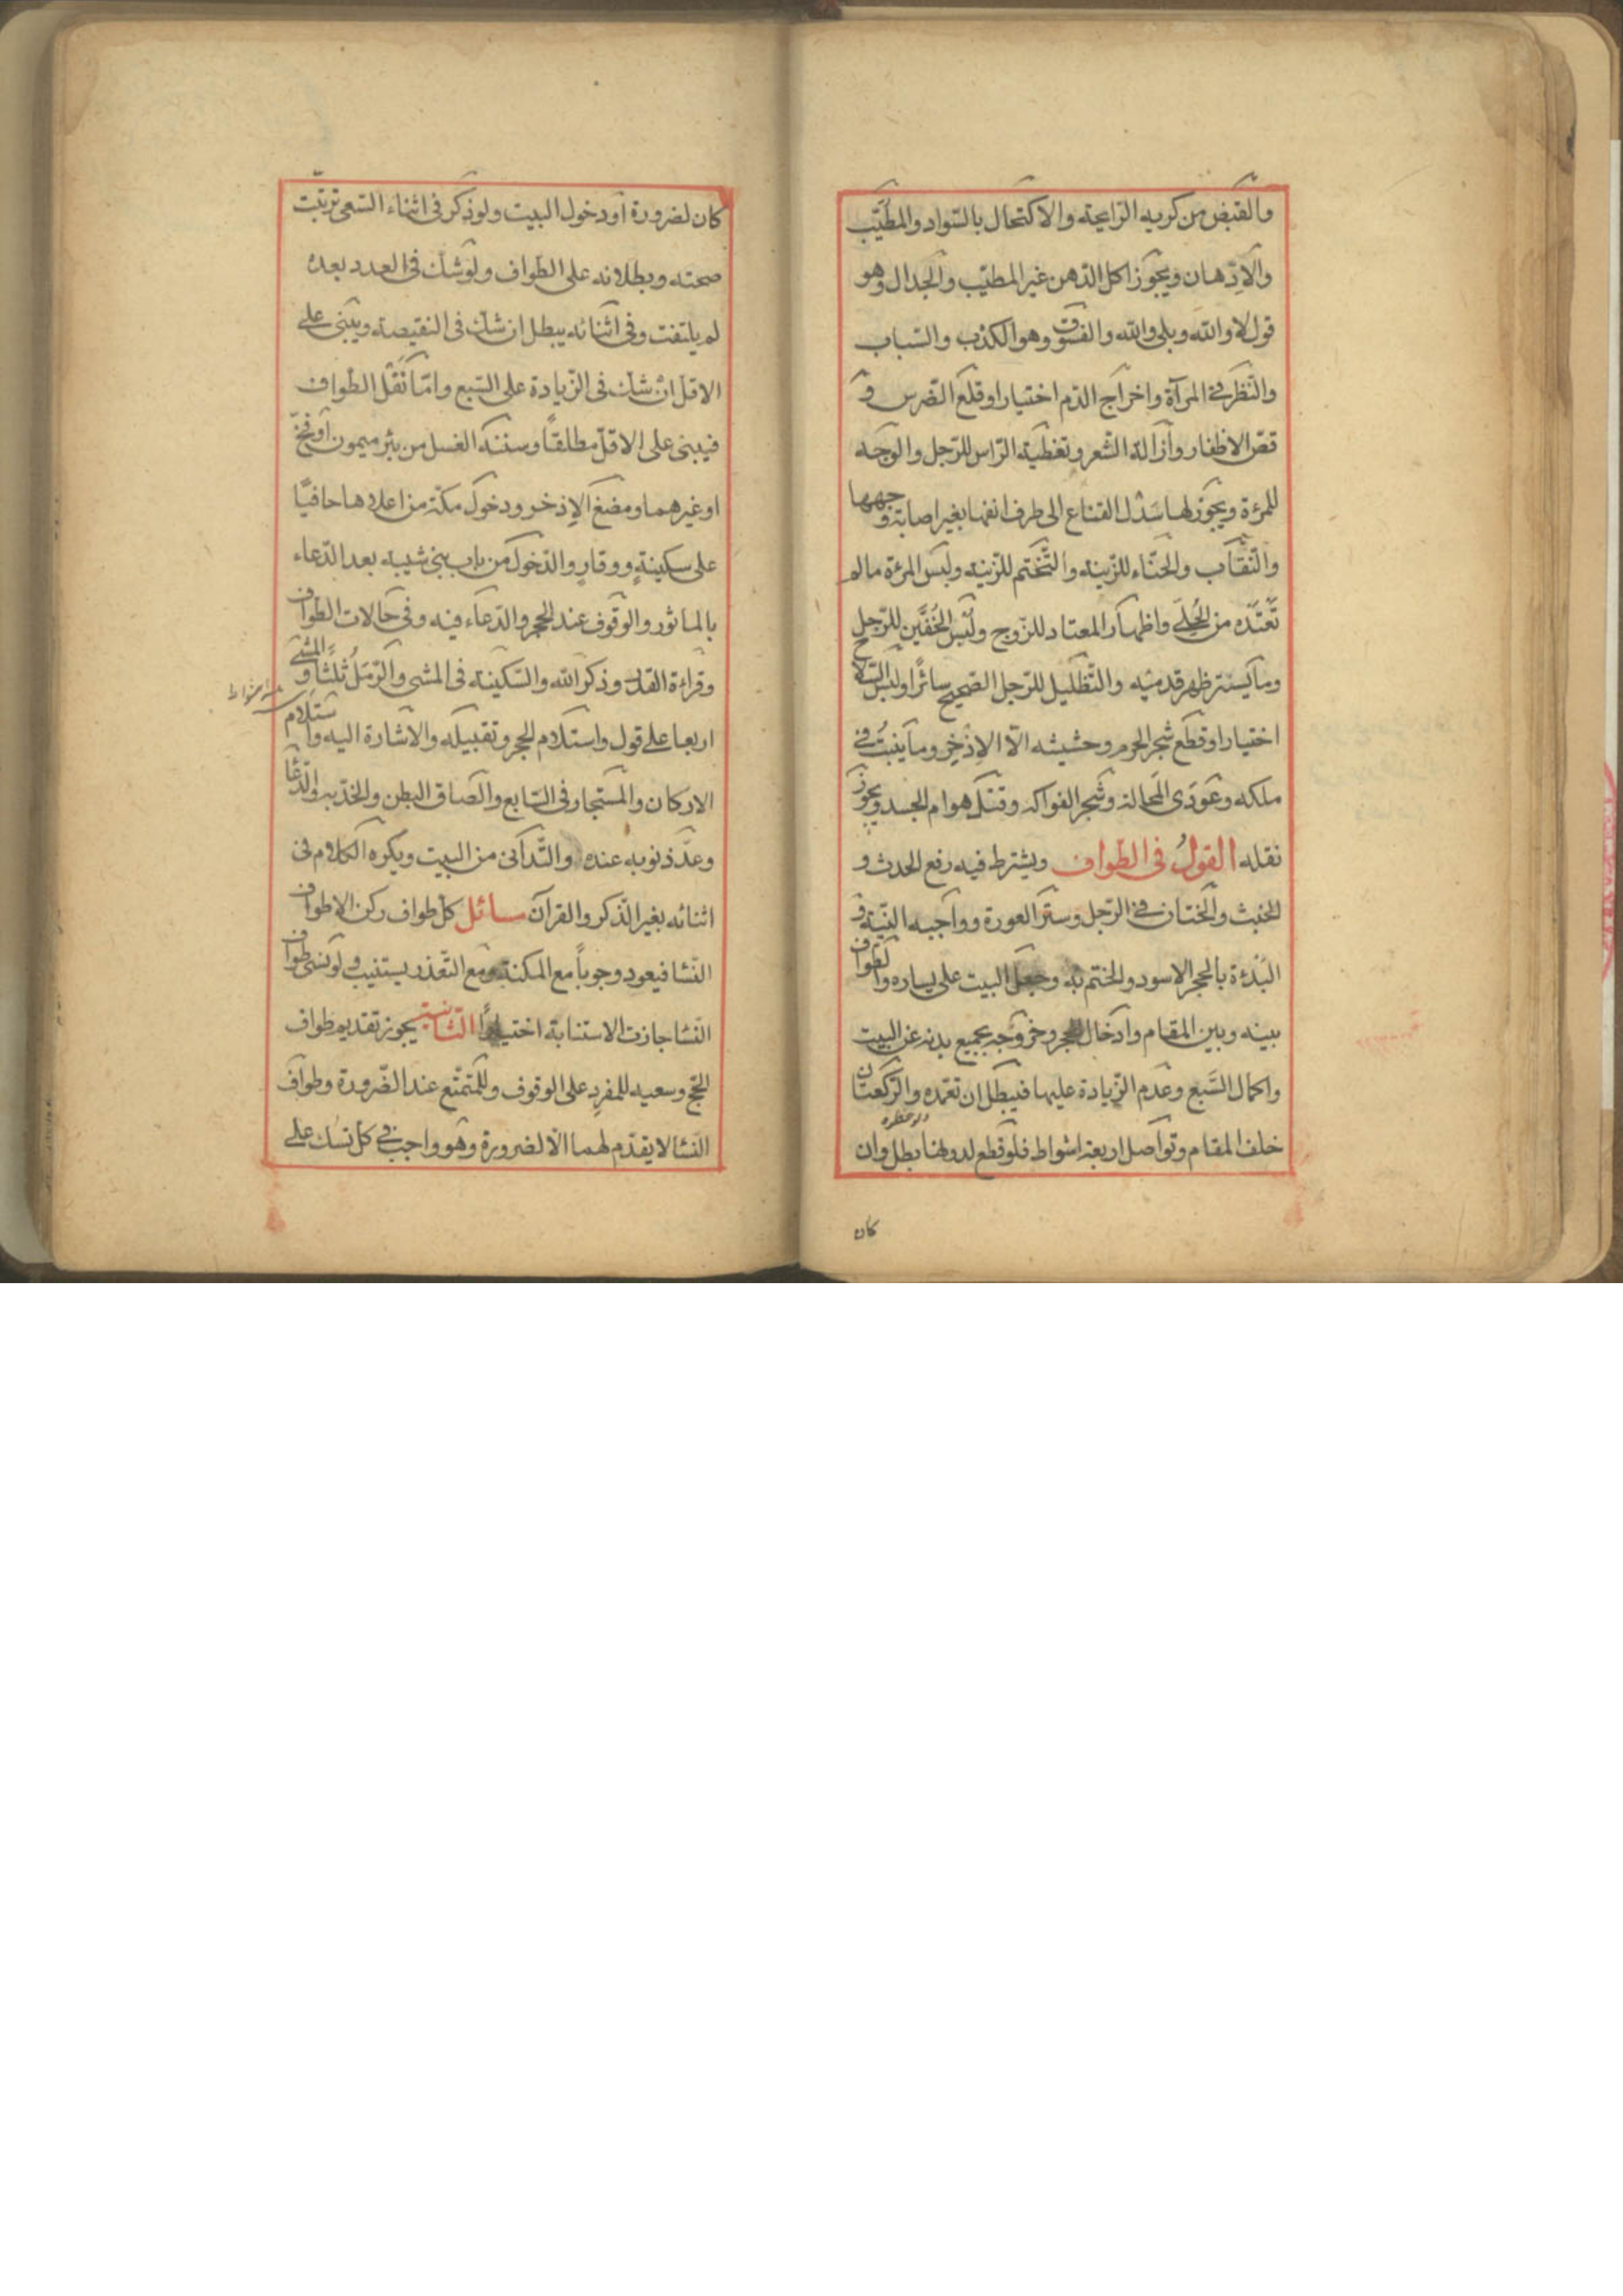 والقبض من كريه الرّايحة والاكتحال بالسّواد والمطيّب
والادّهان ويجوز اكل الدّهن غير المطيّب والجدال وهو
قول لا والله وبلى والله والفسوق وهو الكذب والسّباب
والنّظر في المرآة واخراج الدّم اختيارا وقلع الضّرس و
قصّ الاظفار وازالة الشّعر وتغطية الرّاس للرّجل والوجه
للمرءة ويجوز لها سَدْل القناع الى طرف انفها بغير اصابة وجهها
والنّقاب والحنّاء للزّينة والتّختم للزّينة ولبس المرءة مالم
تَعْتَدْه من الحُلى واظهار المعتاد للزّوج ولُبس الخُفّين للرّجل
وما يستر ظهر قدميه والتّظليل للرّجل الصّحيح سائرًا ولبس السّلاح
اختيارا وقطع شجر الحرم وحشيشه الّا الاِذْخِر وما ينبت في
ملكه وعودَى المَحالة وشجر الفواكه وقتل هوام الجسد ويجوز
نقله القولُ في الطواف ويشترط فيه رفع الحدث و
الخبث والختان في الرّجل وستر العورة وواجبه النّيّة و
البَدْءة بالحجر الاسود والختم به وجعل البيت على يساره والطواف
بينه وبين المقام وادخال الحجر وخروجه بجميع بدنه عن البيت
واكمال السّبع وعدم الزّيادة عليها فيبطل ان تعمّده والرّكعتان
خلف المقام وتواصل اربعة اشواط فلو قطع لدونها بطل وان
كان
كان لضرورة او دخول البيت ولو ذكر في اثناء السّعى ترتّبت
صحته وبطلانه على الطّواف ولو شك في العدد بعده
لم يلتفت وفى اثنائه يبطل ان شك في النقيصة ويبنى على
الاقل ان شك في الزّيادة على السّبع وامّا نَفْل الطّواف
فيبنى على الاقلّ مطلقاً وسننه الغسل من بئر ميمون او فخّ
او غيرهما ومضغ الاِذخر ودخول مكّة من اعلاها حافيًا
على سكينةٍ ووقارٍ والدّخول من باب بنى شيبه بعد الدّعاء
بالماثور والوقوف عند الحجر والدّعاء فيه وفى حالات الطواف
وقراءة القدر وذكر الله والسّكينة في المشى والرّمَلُ ثَلثا والمشى
اربعا على قول واستلام الحجر وتقبيله والاشارة اليه واستلام
الاركان والمستجار في السّابع والصاق البطن والخدّ به والدّعا
وعدّ ذنوبه عنده والتّدانى من البيت ويكره الكلام فى
اثنائه بغير الذّكر والقرآن مسائل كلّ طواف ركن الا طواف
النّسا فيعود وجوباً مع المكنة ومع التّعذر يستنيب ولو نسى طواف
النّسا جازت الاستنابة اختيارًا الثّانية يجوز تقديم طواف
الحجّ وسعيه للمفرِد على الوقوف وللمتمتّع عند الضّرورة وطواف
النّسا لا يقدّم لهما الّا لضرورة وهو واجب في كل نسك على